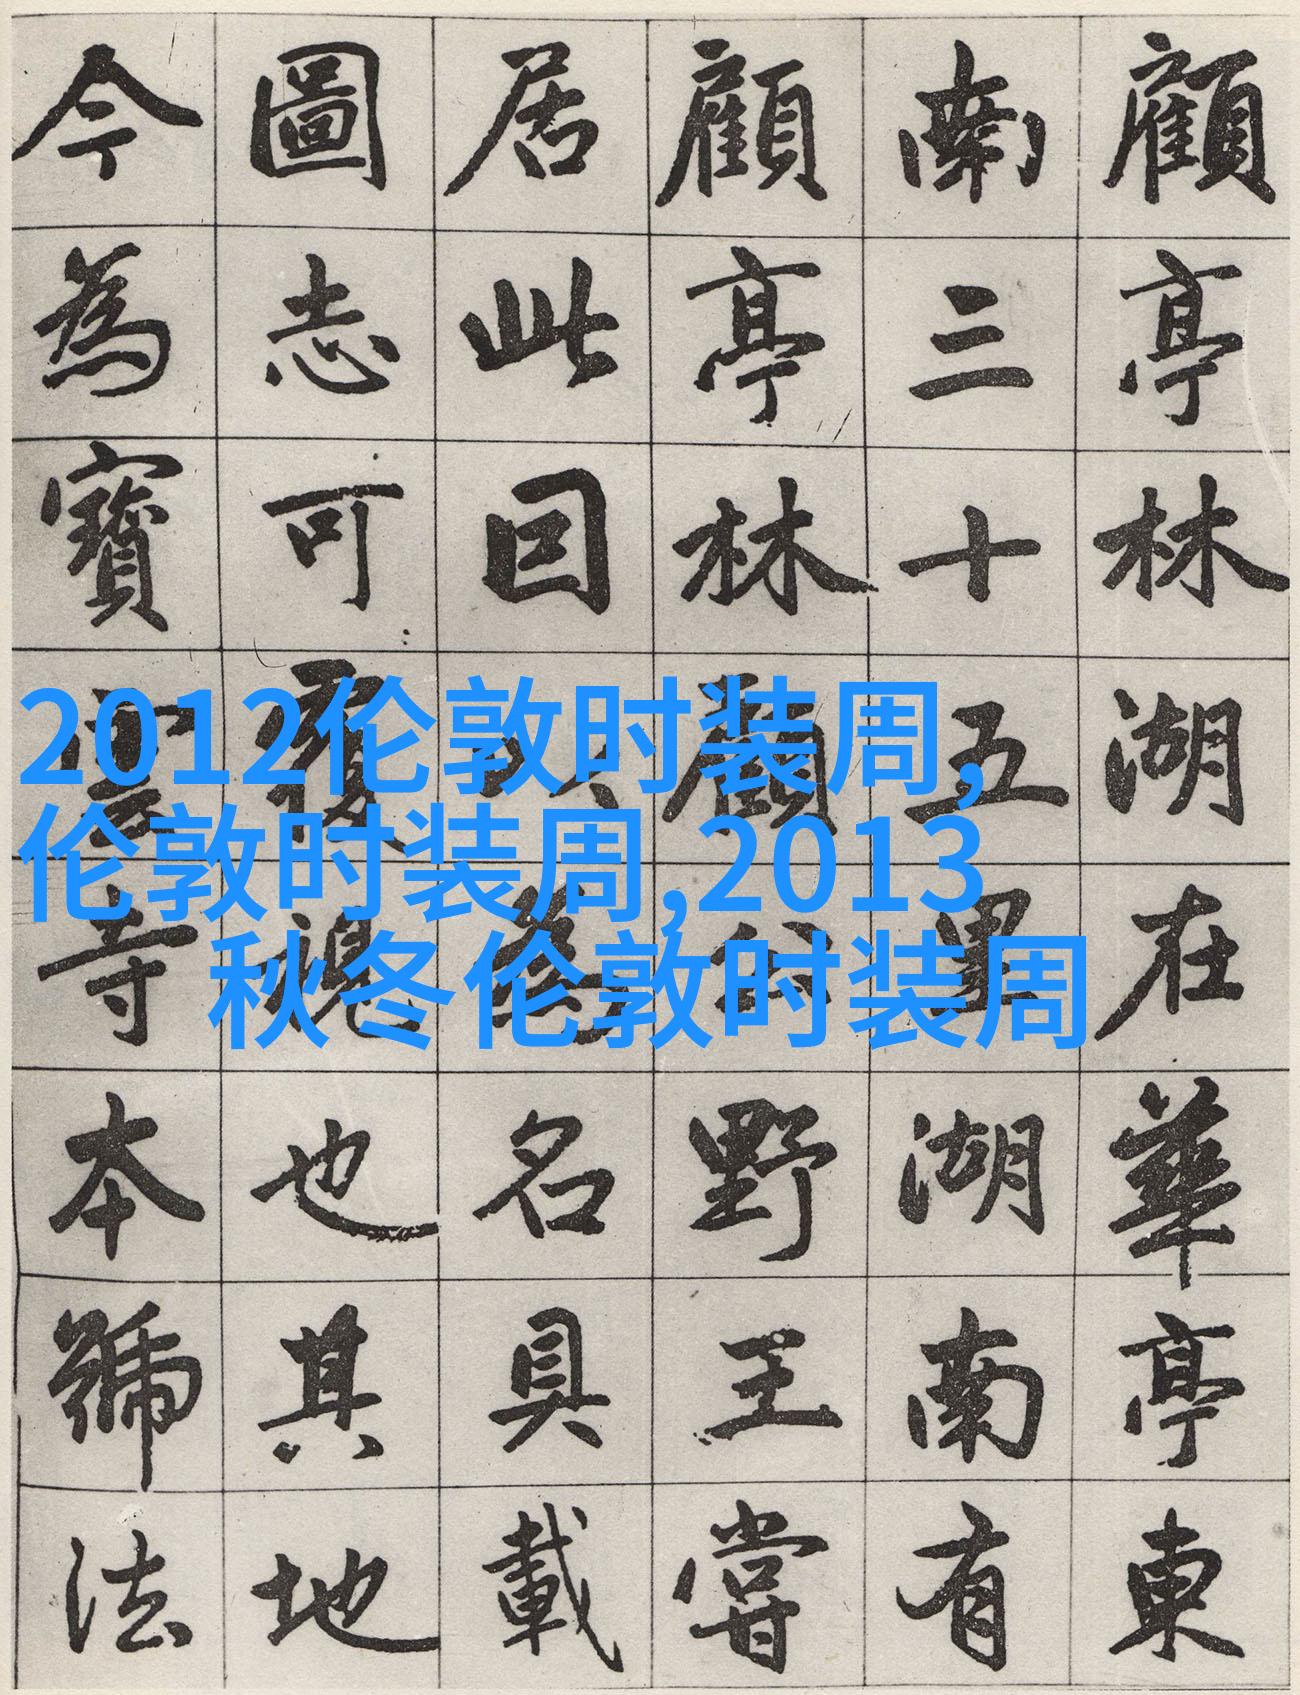 顧亭林湖在華亭東
南三十五里湖南有
顧亭林顧公野王嘗
居此因以為名具載
圖志可覆視也其地
今為寶雲寺本號法
2012伦敦时装周,
伦敦时装周,2013
秋冬伦敦时装周